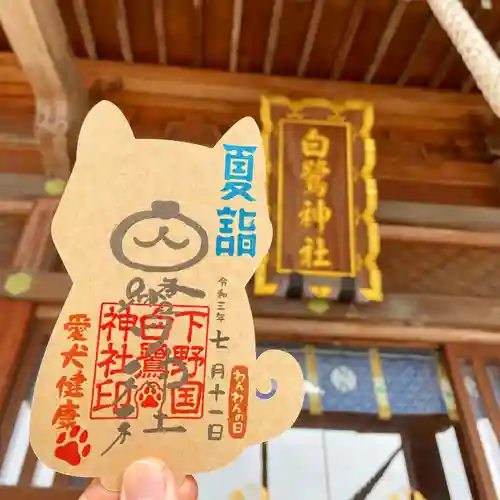 白鷺神社
夏詣
令和三年
七月十一日
わんわんの日
下野国
白鷺
神社印
白鷺神社
愛犬健康